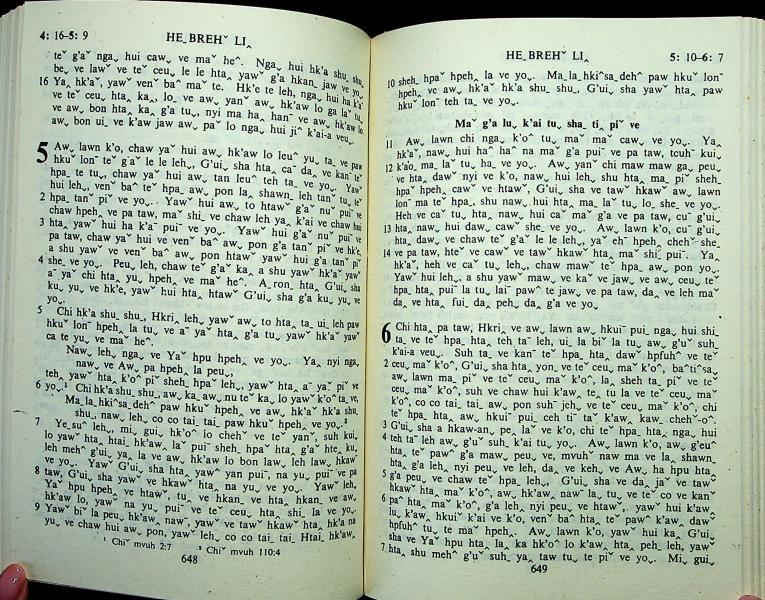 4: 16–5: 9
HE_ BREHˇ LI‸
teˇ g'aˇ nga˯ hui caw˯ ve maˇ heˆ. Nga˯ hui hk'a shu_ shu_
be˯ ve lawˇ ve teˇ ceu˯ le le hta˯ yawˇ g'a hkan_ jaw ve yo˯.
16 Ya‸ hk'aˇ, yawˇ ven˘ baˆ maˇ te. Hk'e te leh, nga˯ hui ha hk'aˇ
ve te ceu˯ hta‸ ka‸, lo˯ ve aw˯ yanˇ aw˯ hk'aw lo ga laˇ tu˯
ve aw˯ bon hta‸ ka˯ g'a tu˯, nyi ma ha‸ hanˉ ve aw˯ hk'aw lo
aw˯ bon ui˯ ve k'aw jaw aw˯ paˇ lo nga˯ hui jiˆ k'ai-a veu˯.
5 Aw˯ lawn k'o, chaw yaˇ hui aw˯ hk'aw lo leuˆ yu˯ ta˯ ve paw
hkuˇ lonˉ teˇ g'aˇ le le leh˯, G'ui˯ sha hta‸ caˉ da‸ ve kanˉ teˇ
hpa_ te tu˯, chaw yaˇ hui aw˯ tan leuˆ teh_ ta˯ ve yo˯. Yawˇ
hui leh˯, ven˘ baˆ teˇ hpa_ aw˯ pon la_ shawn_ leh tanˇ tu˯ teˇ
2 hpa_ tanˇ piˇ ve yo˯. Yawˇ hui aw˯ to htawˇ g'aˇ nuˇ puiˉ ve
chaw hpeh˯ ve pa taw, maˇ shi_ ve chaw leh ya‸ k'ai ve chaw hui
3 hta‸ yawˇ hui ha k'aˉ puiˉ ve yo˯. Yawˇ hui g'aˇ nuˇ puiˉ ve
pa taw, chaw yaˇ hui ve ven˘ baˆ aw˯ pon g'a tanˇ piˇ ve hk'e,
a shu yawˇ ve ven˘ baˆ aw˯ pon htawˇ yawˇ hui g'a tanˇ piˇ
4 she˯ ve yo˯. Peu˯ leh, chaw teˇ g'aˇ ka‸ a shu yawˇ hk'aˇ yawˇ
aˉ yaˇ chi hta‸ yu˯ hpeh˯ ve maˇ heˆ. A_ ron_ hta‸ G'ui˯ sha
ku˯ yu˯ ve hk'e, yawˇ hui hta‸ htawˇ G'ui˯ sha g'a ku˯ yu˯ ve
yo˯.
5 Chi hk'a shu_ shu_, Hkri‸ leh˯ yawˇ aw˯ to hta‸ ta˯ ui_ leh paw
hkuˇ lonˉ hpeh˯ la tu˯ ve aˉ yaˇ hta‸ g'a tu˯ yawˇ hk'aˇ yawˇ
ca te yu˯ ve maˇ heˆ.
Naw˯ leh˯ nga˯ ve Yaˇ hpu hpeh˯ ve yo˯. Ya‸ nyi nga˯
naw˯ ve Aw˯ pa hpeh˯ la peu˯,
teh_ yawˇ hta‸ k'oˆ piˇ sheh_ hpaˇ leh˯, yawˇ hta‸ aˉ yaˇ piˇ ve
6 yo˯.¹ Chi hk'a shu_ shu_, aw˯ ka_ aw˯ nu teˇ ka˯ lo yawˇ k'oˆ ta˯ ve,
Ma_ la_ hkiˆ sa_ dehˆ paw hkuˇ hpeh˯ ve aw˯ hk'aˇ hk'a shu_
shu_, naw˯ leh˯ co co tai_ tai_ paw hkuˇ hpeh˯ ve yo˯.²
7 Ye_ suˆ leh˯, mi_ gui_ hk'oˆ lo chehˇ ve te yanˇ, suh kui˯
lo yawˇ hta‸ htai hk'aw˯ la˯ puiˉ sheh_ hpaˇ hta‸ g'aˇ hte˯ ku˯
leh mehˇ g'ui˯ ya‸ la ve aw˯ hk'aw lo bon law˯ leh law˯ hkawˇ
ve yo˯. Yawˇ G'ui˯ sha hta‸ yawˆ yan puiˉ na˯ yu˯ puiˉ ve pa
8 taw, G'ui˯ sha yawˇ ve hkawˇ hta‸ na yu˯ ve yo˯. Yawˇ leh˯
Yaˇ hpu hpeh˯ ve htawˇ, tu˯ ve hkan_ ve hta‸ hkan_ ve aw˯
hk'aw lo, yawˇ na yu˯ puiˉ ve teˇ ceu˯ hta‸ shi_ la ve yo˯.
9 Yawˇ biˇ la peu˯ hk'aw˯ nawˇ, yawˇ ve tawˇ hkawˇ hta‸ hk'a na
yu˯ ve chaw hui aw˯ pon, yawˇ leh˯ co co tai_ tai_ Htai hk'aw˯
¹ Chiˇ mvuh 2:7 ² Chiˇ mvuh 110:4
648
HE_ BREHˇ LI‸
5: 10–6: 7
10 sheh_ hpaˇ hpeh‸ la ve yo˯. Ma_ la_ hkiˆ sa_ dehˆ paw hkuˇ lonˉ
hpeh˯ ve aw˯ hk'aˇ hk'a shu_ shu_, G'ui˯ sha yawˇ hta‸ paw
hkuˇ lonˉ teh ta˯ ve yo˯.
Maˇ g'a lu˯ k'ai tu˯ sha_ ti‸ piˇ ve
11 Aw˯ lawn chi nga˯ k'oˆ tu˯ maˇ maˇ caw˯ ve yo˯. Ya‸
hk'aˇ, naw˯ hui haˆ haˆ na maˇ g'a puiˉ ve pa taw, tcuhˉ kui˯
12 k'ao˯ ma_ laˇ tu˯ ha˯ ve yo˯. Aw˯ yanˇ chi maw maw ga˯ peu˯
ve hta‸ dawˇ nyi ve k'o, naw˯ hui leh˯ shu hta‸ ma_ piˇ sheh_
hpaˇ hpeh˯ caw˯ ve htawˇ, G'ui˯ sha ve tawˇ hkawˇ aw˯ lawn
lonˉ ma teˇ hpa_, shu naw˯ hui hta‸ ma_ laˇ tu˯ lo_ she_ ve yo˯.
Heh ve caˇ tu˯ hta‸ naw˯ hui caˇ maˇ g'a ve pa taw, cuˆ g'ui˯
13 hta‸ naw˯ hui daw˯ cawˇ she˯ ve yo˯. Aw˯ lawn k'o, cuˆ g'ui˯
hta‸ daw˯ ve chaw teˇ g'aˇ le le leh˯, yaˇ ehˉ hpeh˯ chehˇ she˯
14 ve pa taw, hteˇ ve cawˇ ve tawˇ hkawˇ hta‸ maˇ shi_ puiˉ. Ya‸
hk'aˇ, heh ve caˇ tu˯ leh˯, chaw mawˇ teˇ hpa_ aw˯ pon yo˯.
Yawˇ hui leh˯, a shu yawˇ maw˯ ve kaˇ ve jaw˯ ve aw˯ ceu˯ teˇ
hpa_ hta‸ puiˉ la tu˯ laiˉ pawˆ te jaw˯ ve pa taw, da‸ ve leh maˇ
da‸ ve hta‸ fui_ da‸ peh˯ da‸ g'a ve yo˯.
6 Chi hta‸ pa taw, Hkri‸ ve aw˯ lawn aw˯ hkuiˉ pui_ nga˯ hui shi_
ta˯ ve teˇ hpa_ hta‸ teh taˉ leh, ui_ la biˇ la tu˯ aw˯ g'uˇ suhˉ
k'ai-a veu˯. Suh ta˯ ve kanˉ teˇ hpa_ hta‸ dawˇ hpfuhˆ ve teˇ
2 ceu˯ maˇ k'oˆ, G'ui˯ sha hta‸ yon_ ve teˇ ceu˯ maˇ k'oˆ, baˆ tiˆ sa˯
aw˯ lawn ma_ piˇ ve teˇ ceu˯ maˇ k'oˆ, la‸ sheh ta_ piˇ ve teˇ
ceu˯ maˇ k'oˆ, suh ve chaw hui k'aw‸ te‸ tu la ve teˇ ceu˯ maˇ
k'oˆ, co co tai_ tai_ aw˯ pon suhˉ jeh˯ ve teˇ ceu˯ maˇ k'oˆ, chi
teˇ hpa_ hta‸ aw˯ hkuiˉ pui_ ceh tiˉ taˇ k'aw‸ kaw_ chehˇ-oˆ.
3 G'ui˯ sha a hkaw-an_ pe_ laˇ ve k'o, chi teˇ hpa_ hta‸ nga˯ hui
4 teh taˉ leh aw˯ g'uˇ suhˉ k'ai tu˯ yo˯. Aw˯ lawn k'o, aw˯ g'euˆ
hta‸ teˇ pawˆ g'a maw˯ peu˯ ve, mvuhˇ naw ma ve la_ shawn_
hta‸ g'a leh˯ nyi peu˯ ve leh, da‸ ve keh˯ ve Aw˯ ha hpu hta‸
5 g'a peu˯ ve chaw teˇ hpa_ leh˯, G'ui˯ sha ve da‸ jaˇ ve tawˇ
hkawˇ hta‸ maˇ k'oˆ, aw˯ hk'aw‸ nawˇ la‸ tu˯ ve teˇ co ve kanˇ
6 paˆ hta‸ maˇ k'oˆ, g'a leh˯ nyi peu˯ ve htawˇ, yawˇ hui k'aw‸
lu˯ k'aw‸ hkuiˉ k'ai ve k'o, ven˘ baˆ hta‸ teˇ pawˆ k'aw‸ daw˯
hpfuhˆ tu˯ te maˇ hpeh˯. Aw˯ lawn k'o, yawˇ hui ka‸ G'ui˯
sha ve Yaˇ hpu hta‸ la‸ ka hk'oˆ lo k'aw‸ hta‸ peh_ leh, yawˇ
7 hta‸ shu mehˆ g'uˇ suh_ ya‸ taw tu˯ te piˇ ve yo˯. Mi_ gui_
649